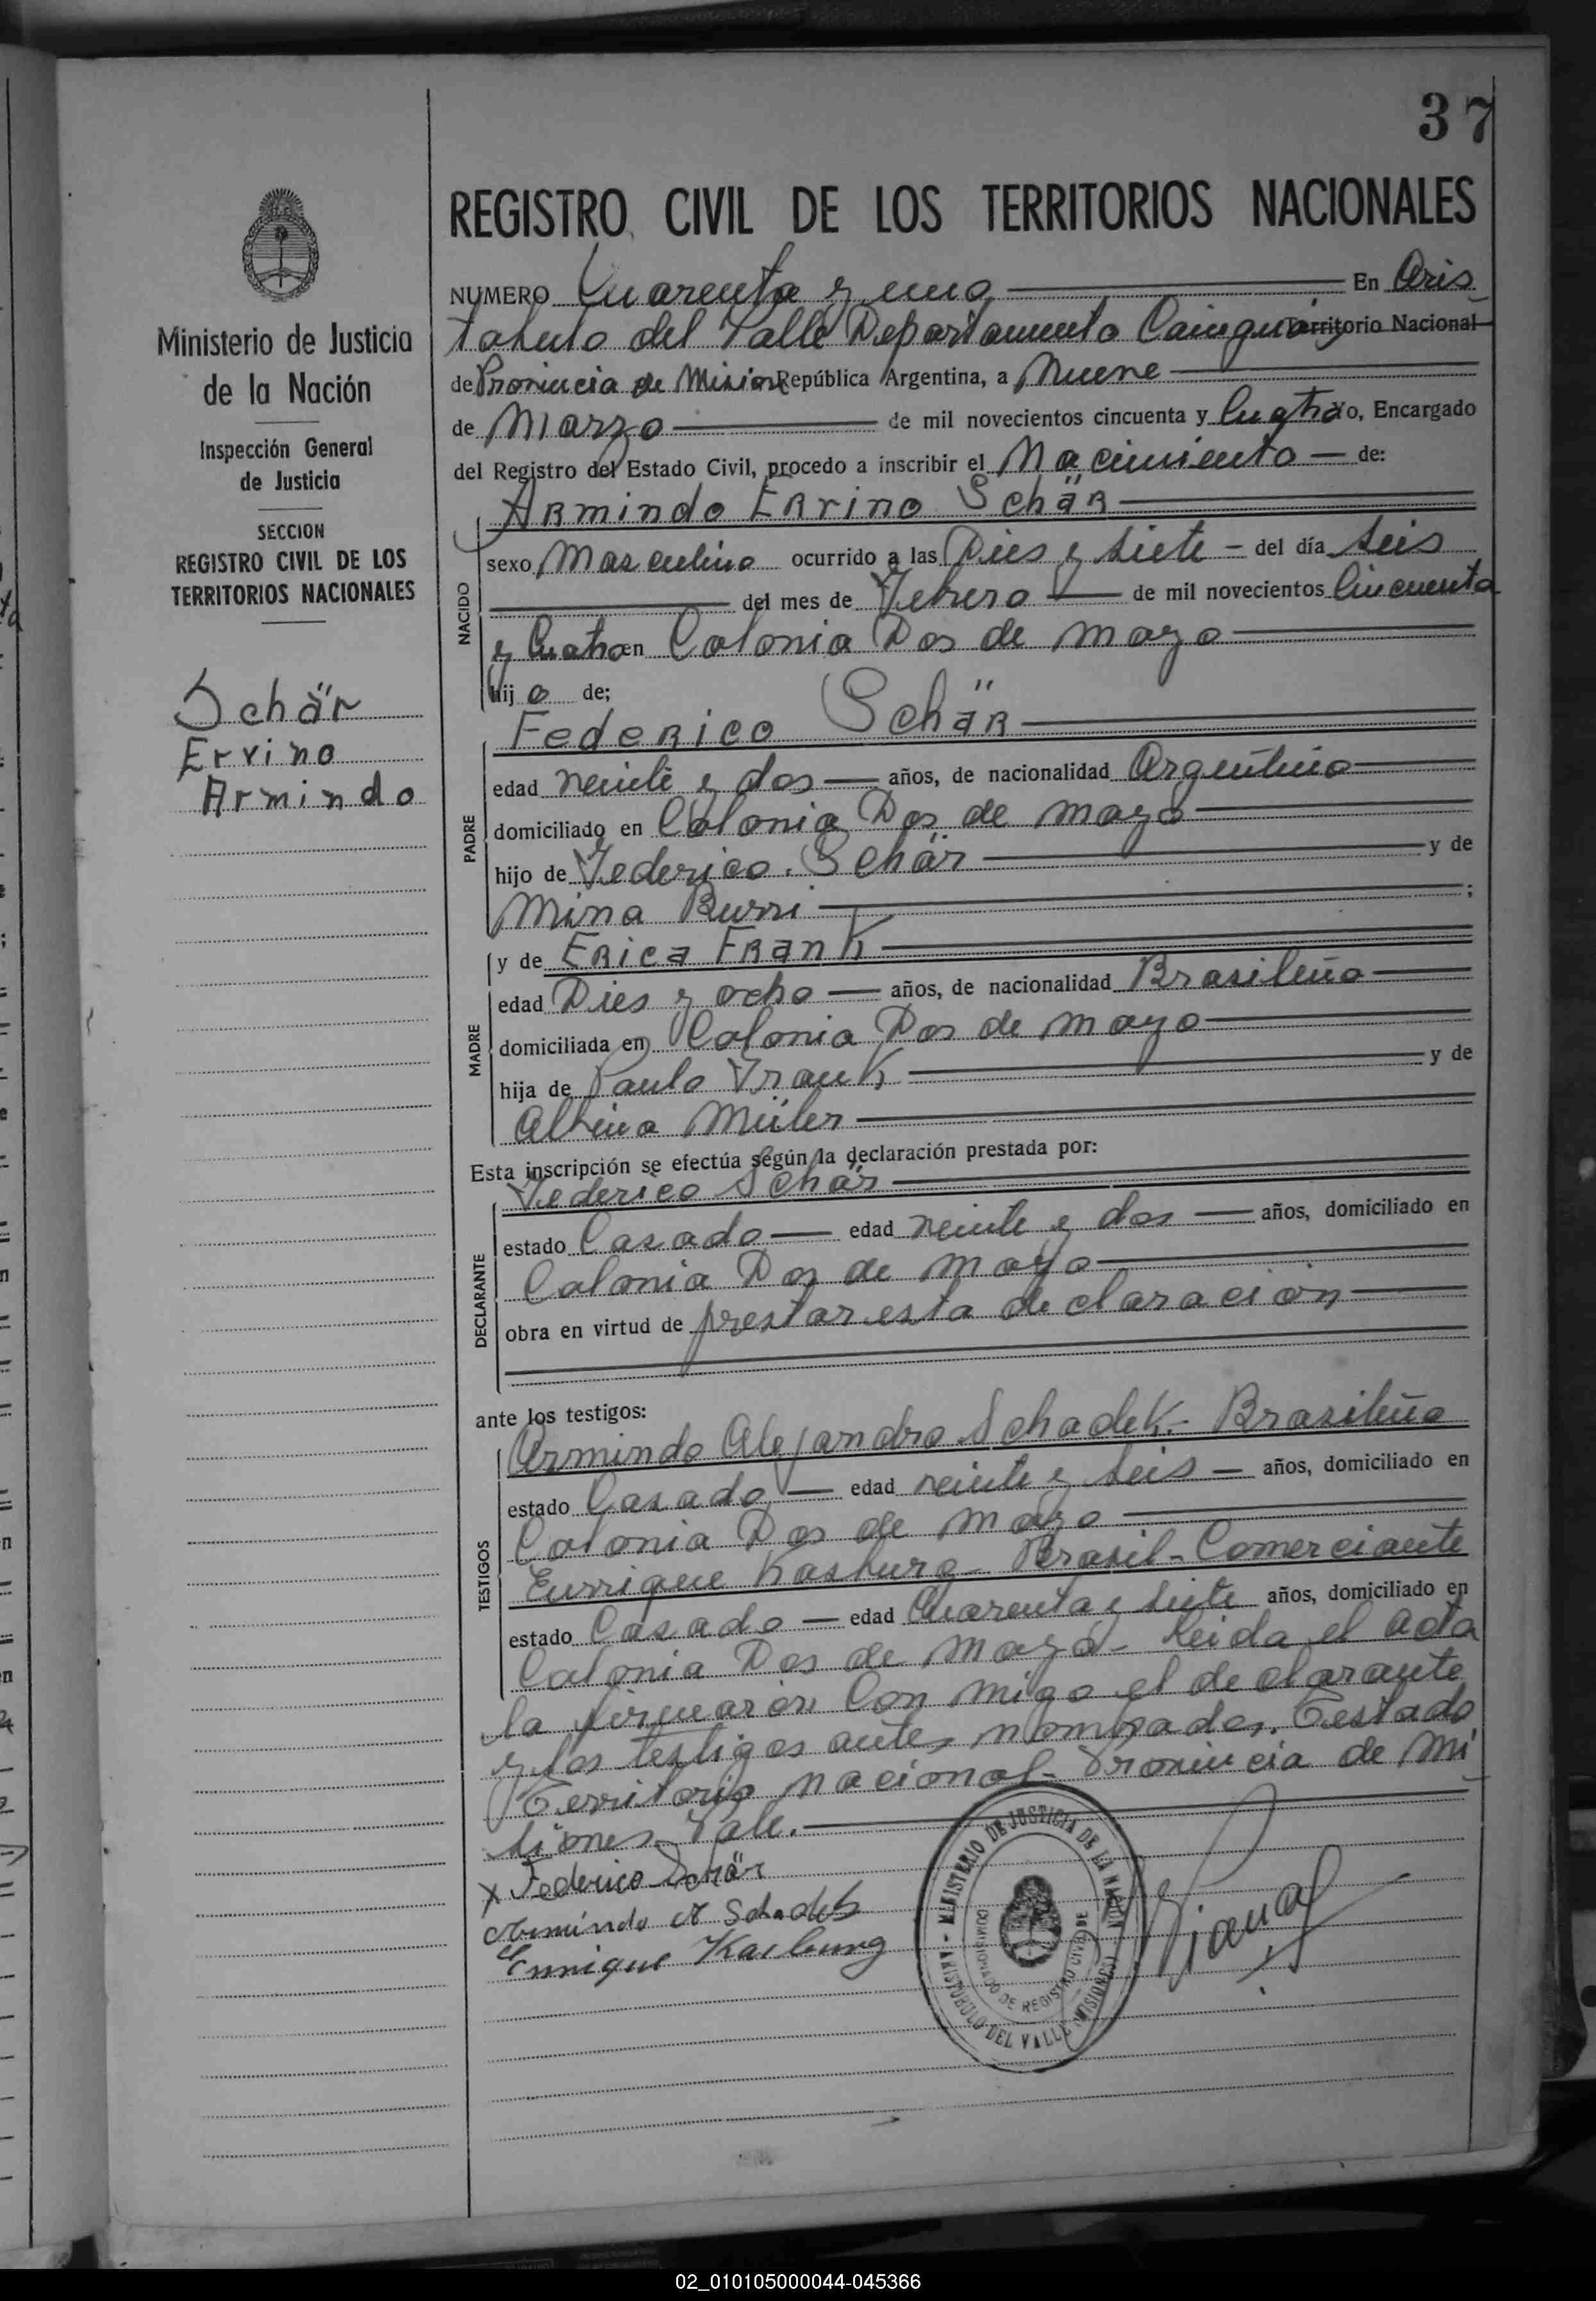 37
Ministerio de Justicia
de la Nación
Inspección General
de Justicia
SECCION
REGISTRO CIVIL DE LOS
TERRITORIOS NACIONALES
Schär
Ervino
Armindo
REGISTRO CIVIL DE LOS TERRITORIOS NACIONALES
NUMERO Cuarenta y uno En Aris
tobulo del Valle Departamento Cainguás Territorio Nacional
de Provincia de Mision República Argentina, a Nueve
de Marzo de mil novecientos cincuenta y Cuatro, Encargado
del Registro del Estado Civil, procedo a inscribir el Nacimiento de:
NACIDO
Armindo Ervino Schär
sexo Masculino ocurrido a las Dies y siete - del día seis
del mes de Febrero de mil novecientos Cincuenta
y Cuatro en Colonia Dos de mayo
hijo de;
PADRE
Federico Schär
edad veinte y dos años, de nacionalidad Argentino
domiciliado en Colonia Dos de mayo
hijo de Federico. Schär y de
Mina Burri ;
MADRE
y de Erica Frank
edad Dies y ocho años, de nacionalidad Brasileña
domiciliada en Colonia Dos de mayo
hija de Paulo Frank y de
Albina Müler
Esta inscripción se efectúa según la declaración prestada por:
DECLARANTE
Federico Schär
estado Casado edad veinte y dos años, domiciliado en
Colonia Dos de mayo
obra en virtud de prestar esta declaración
ante los testigos:
TESTIGOS
Armindo Alejandro Schadek.- Brasileño
estado Casado edad veinte y seis años, domiciliado en
Colonia Dos de mayo
Enrrique Kasburg - Brasil - Comerciante
estado Casado edad Cuarenta y siete años, domiciliado en
Colonia Dos de mayo - Leida el acta
la firmarón Con migo el declarante
y los testigos antes nombrados. Testado
Territorio nacional - Provincia de Mi
siones Vale.
x Federico Schär
Armindo A Schadek
Enrique Kasburg
MINISTERIO DE JUSTICIA DE LA NACION
ARISTOBULO DEL VALLE (MISIONES)
DE REGISTRO CIVIL DE
02_010105000044-045366